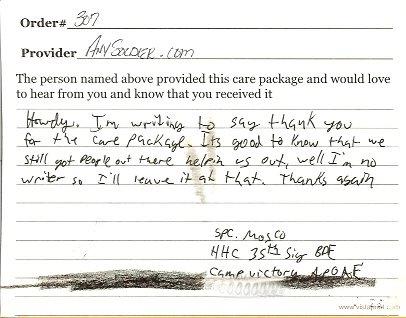 Order# 307
Provider AnySoldier.com
The person named above provided this care package and would love
to hear from you and know that you received it
Howdy. I'm writing to say thank you
for the care package. Its good to know that we
still got people out there helpin us out, well I'm no
writer so I'll leave it at that. Thanks again
SPC. Mosco
HHC 35th Sig BDE
Camp Victory APO AE